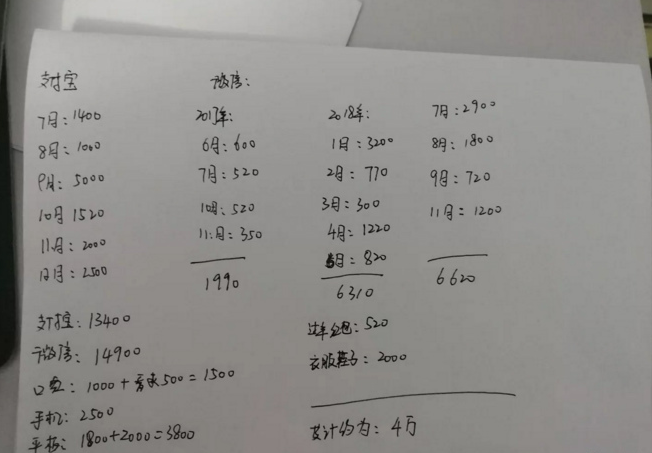 支付宝
7月:1400
8月:1000
9月:5000
10月1520
11月:2000
12月:2500
微信:
2017年:
6月:600
7月:520
10月:520
11月:350
1990
2018年:
1月:3200
2月:770
3月:300
4月:1220
5月:820
6310
7月:2900
8月:1800
9月:720
11月:1200
6620
支付宝:13400
微信:14900
口红:1000+香水500=1500
手机:2500
平板:1800+2000=3800
过年红包:520
衣服鞋子:2000
总计约为:4万